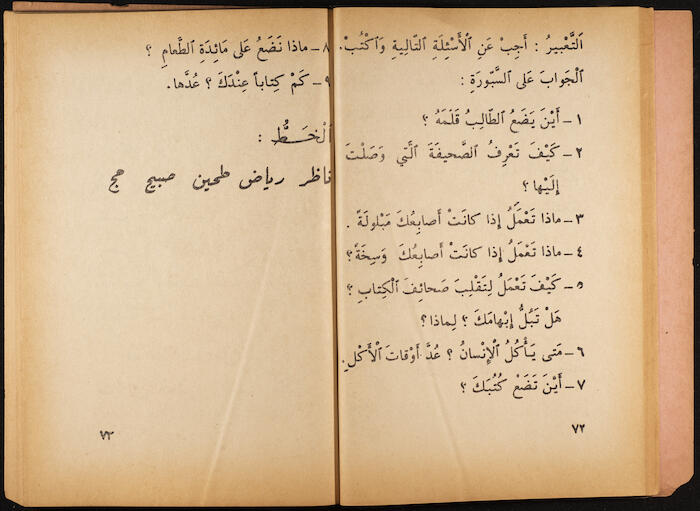 ٱلتَّعْبيرُ : أَجِبْ عَنِ ٱلْأَسْئِلَةِ ٱلتّالِيةِ وَٱكْتُبْ.
ٱلْجَوابَ عَلى ٱلسَّبّورَةِ :
١ – أَيْنَ يَضَعُ ٱلطّالِبُ قَلَمَهُ ؟
٢ – كَيْفَ تَعْرِفُ ٱلصَّحيفَةَ ٱلَّتي وَصَلْتَ
إِلَيْها ؟
٣ – ماذا تَعْمَلُ إِذا كانَتْ أَصابِعُكَ مَبْلولَةً .
٤ – ماذا تَعْمَلُ إِذا كانَتْ أَصابِعُكَ وَسِخَةً ؟
٥ – كَيْفَ تَعْمَلُ لِتَقْلِبَ صَحائِفَ ٱلْكِتابِ ؟
هَلْ تَبُلُّ إِبْهامَكَ ؟ لِماذا ؟
٦ – مَتى يَأْكُلُ ٱلْإِنْسانُ ؟ عُدَّ أَوْقاتَ ٱلْأَكْلِ.
٧ – أَيْنَ تَضَعُ كُتُبَكَ ؟
٧٢
٨ – ماذا نَضَعُ عَلى مَائِدَةِ ٱلطَّعامِ ؟
٩ – كَمْ كِتاباً عِنْدَكَ ؟ عُدَّها.
ٱلْخَطُّ :
ناظر رياض طحين صبيح حج
٧٣